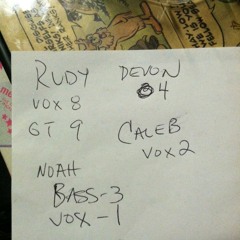 RUDY
VOX 8
GT 9
DEVON
4
CALEB
VOX 2
NOAH
BASS-3
VOX-1